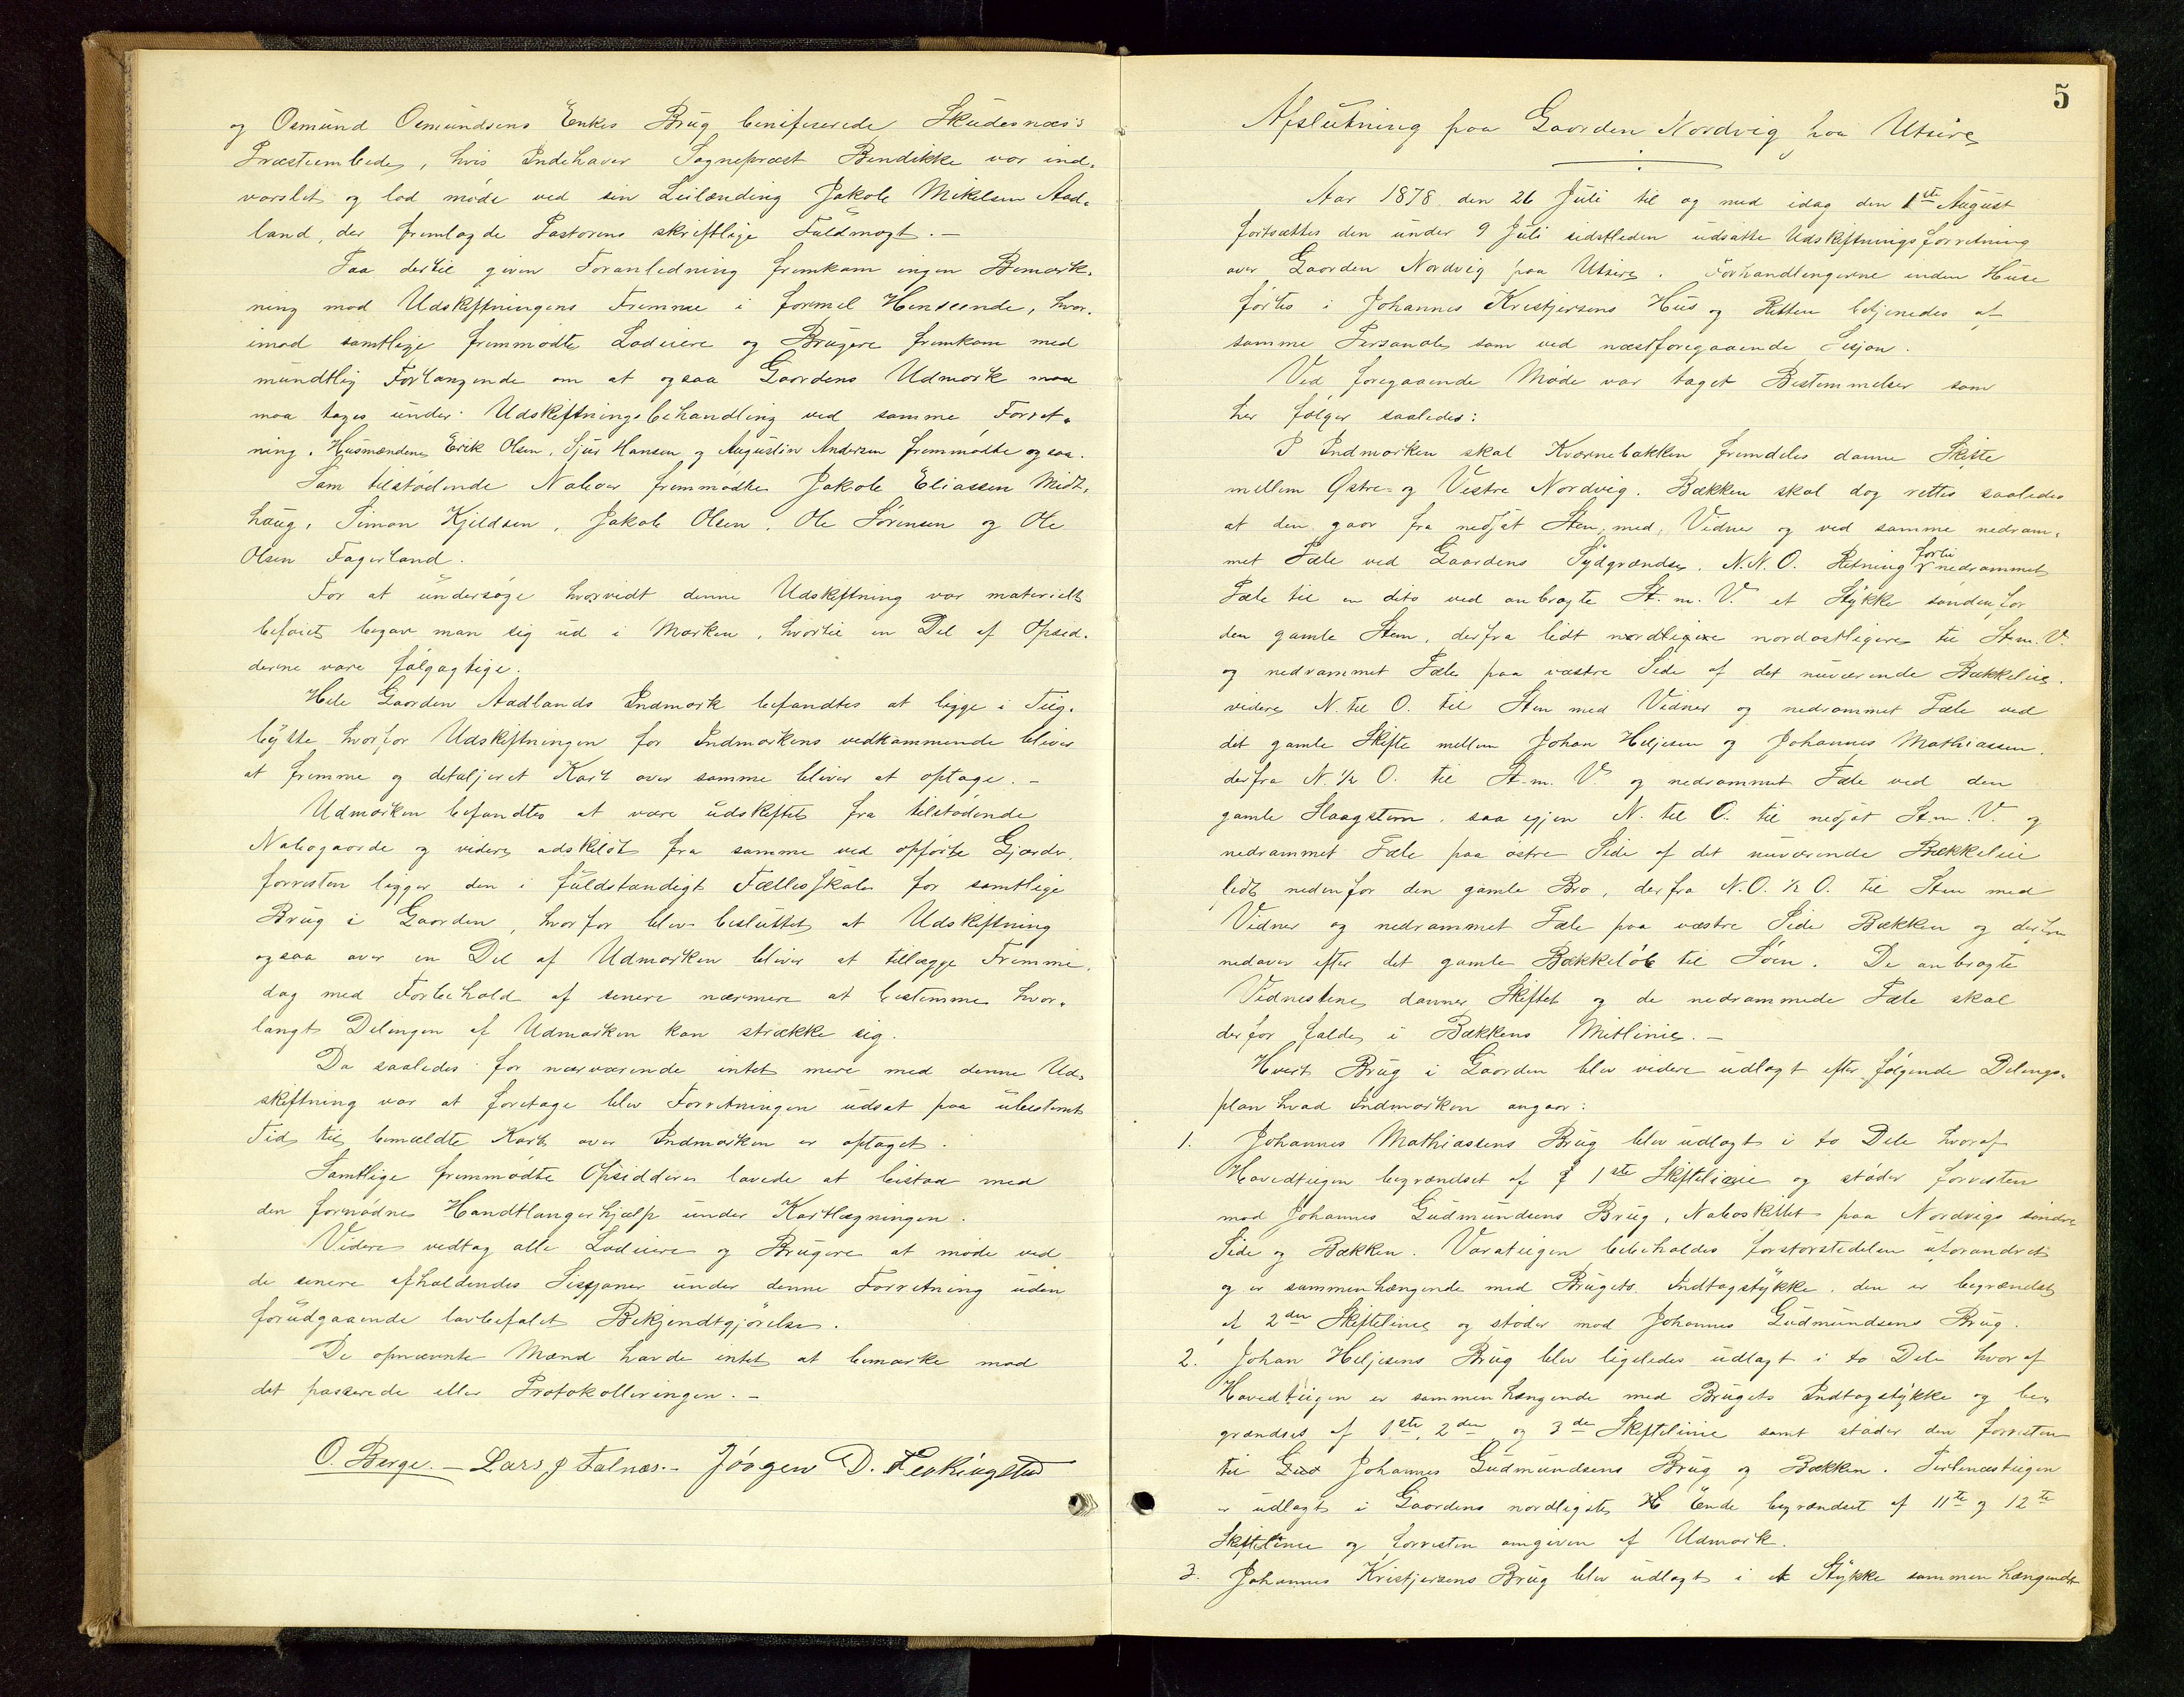 og Osmund Osmundsens Enkes Brug benifiserede Skudesnæs's
Præsteembede, hvis Indehaver Sognepræst Bendikke var ind-
varslet og lod møde ved sin Leilænding Jakob Mikelsen Aad-
land, der fremlagde Pastorens skriftlige Fuldmagt. —
Paa dertil given Foranledning fremkom ingen Bemærk-
ning mod Udskiftningens Fremme i formel Henseende, hvor-
imod samtlige fremmødte Lodeiere og Brugere fremkom med
mundtlig Forlangende om at ogsaa Gaardens Udmark maa
maa tages under Udskiftningsbehandling ved samme Forret-
ning. Husmændene Erik Olsen, Sjur Hansen og Augustin Andersen fremmødte ogsaa.
Som tilstødende Naboer fremmødte Jakob Eliassen Midt-
haug, Simon Kjeldsen, Jakob Olsen, Ole Sørensen og Ole
Olsen Fagerland.
For at undersøge hvorvidt denne Udskiftning var materielt
beføiet begav man sig ud i Marken, hvortil en Del af Opsid-
derne vare følgagtige.
Hele Gaarden Aadlands Indmark befandtes at ligge i Teig-
bytte hvorfor Udskiftningen for Indmarkens vedkommende bliver
at fremme og detaljeret Kart over samme bliver at optage. —
Udmarken befandtes at være udskiftet fra tilstødende
Nabogaarde og videre adskilt fra samme ved opførte Gjærder,
forresten ligger den i fuldstændigt Fællesskab for samtlige
Brug i Gaarden, hvorfor blev besluttet at Udskiftning
ogsaa over en Del af Udmarken bliver at tillægge Fremme,
dog med Forbehold af senere nærmere at bestemme hvor-
langt Delingen af Udmarken kan strække sig.
Da saaledes for nærværende intet mere med denne Ud-
skiftning var at foretage blev Forretningen udsat paa ubestemt
Tid til bemældte Kart over Indmarken er optaget.
Samtlige fremmødte Opsiddere lovede at bistaa med
den fornødne Handtlangerhjælp under Kartlægningen.
Videre vedtog alle Lodeiere og Brugere at møde ved
de senere afholdendes Sessjoner under denne Forretning uden
forudgaaende lovbefalet Bekjendtgjørelse.
De opnævnte Mænd havde intet at bemærke mod
det passerede eller Protokolleringen. —
O. Berge. — Lars J Falnæs. — Jörgen D.
5
Afslutning paa Gaarden Nordvig paa Utsire
Aar 1878 den 26 Juli til og med idag den 1ste August
fortsattes den under 9 Juli sidstleden udsatte Udskiftningsforretning
over Gaarden Nordvig paa Utsire. Forhandlingerne inden Huse
førtes i Johannes Kristjersens Hus og Retten betjenedes af
samme Personale som ved næstforegaaende Sesjon.
Ved foregaaende Møde var taget Bestemmelser som
her følger saaledes:
I Indmarken skal Kværnebakken fremdeles danne Skifte
mellem Østre- og Vestre Nordvig. Bækken skal dog rettes saaledes
at den gaar fra nedsat Sten med Vidner og ved samme nedram-
met Pæle ved Gaardens Sydgrændse, N.N.O. Retning forbi nedrammet
Pæle til en dito ved anbragte St. m. V. et Stykke søndenfor
den gamle Stem, derfra lidt nordligere nordostligere til St. m. V.
og nedrammet Pæle paa væstre Side af det nuværende Bækkeleie.
videre N. til O. til Sten med Vidner og nedrammet Pæle ved
det gamle Skifte mellem Johan Heljesen og Johannes Mathiassen.
derfra N. ½ O. til St. m. V. og nedrammet Pæle ved den
gamle Slaagstem, saa igjen N. til O. til nedsat St. m. V. og
nedrammet Pæle paa østre Side af det nuværende Bækkeleie
lidt nedenfor den gamle Bro, derfra N.O. ½ O. til Sten med
Vidner og nedrammet Pæle paa væstre Side Bækken og derfra
nedover efter det gamle Bækkeløb til Søen. De anbragte
Vidnestene danner Skiftet og de nedrammede Pæle skal
derfor falde i Bækkens Mitlinie. —
Hvert Brug i Gaarden blev videre udlagt efter følgende Delings-
plan hvad Indmarken angaar:
1. Johannes Mathiassens Brug blev udlagt i to Dele hvoraf
Hovedteigen begrændset af 1ste Skiftelinie og støder forresten
mod Johannes Gudmundsens Brug, Naboskiftet paa Nordvigs søndre
Side og Bækken. Varateigen bebeholdes forstørstedelen uforandret
og er sammenhængende med Brugets Indtagstykke, den er begrændset
af 2den Skiftelinie og støder mod Johannes Gudmundsens Brug.
2. Johan Heljesens Brug blev ligeledes udlagt i to Dele hvoraf
Hovedteigen er sammenhængende med Brugets Indtagstykke og be-
grændses af 1ste, 2den og 3de Skiftelinie samt støder den forresten
til Gud Johannes Gudmundsens Brug og Bækken. Perlenesteigen
er udlagt i Gaardens nordligste Ende begrændset af 11te og 12te
Skiftelinie og forresten omgiven af Udmark.
3. Johannes Kristjersens Brug blev udlagt i et Stykke sammenhængende